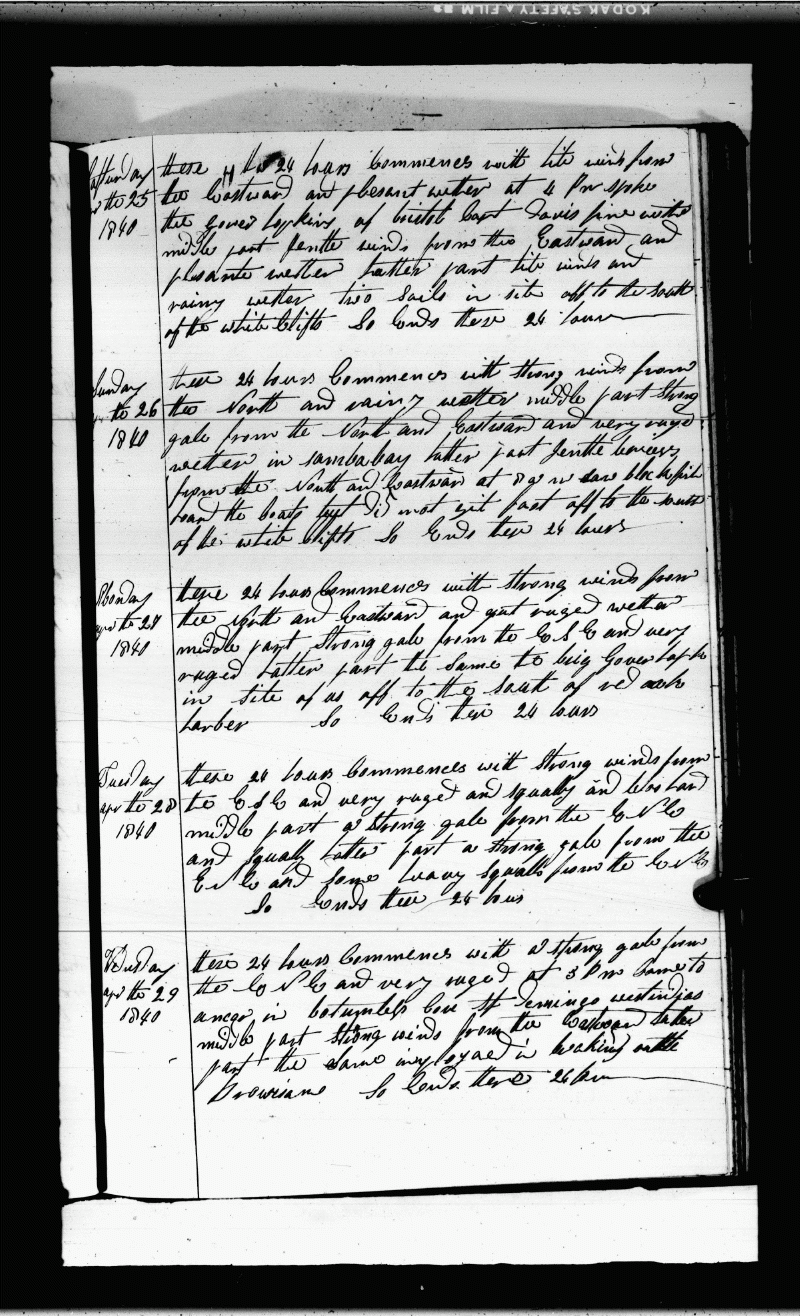 KODAK SAFETY FILM
Satturday
apr the 25
1840
these 24 hours Commences with lite winds from
the Eastward and plesant wether at 4 Pm spoke
the gover hopkins of bristol Capt Davis fine wether
middle part Jentle winds from the Eastward and
plesante wether latter part lite winds and
rainy wether two Sails in site off to the south
of the white Clifts So Ends these 24 hours
Sunday
apr the 26
1840
these 24 hours Commences with strong winds from
the North and rainy wether middle part Strong
gale from the North and Eastward and very ruged
wether in latter part Jentle
from the North and Eastward at 8 a m saw black fish
the boats but did not git fast off to the south
of the white Clifts So Ends these 24 hours
Monday
apr the 27
1840
these 24 hours Commences with strong winds from
the North and Eastward and ruged wether
middle part Strong gale from the E S E and very
ruged latter part the Same the brig Gover hopk
in site of us off to the south of red
harber So Ends these 24 hours
Tuesday
apr the 28
1840
these 24 hours Commences with Strong winds from
the E S E and very ruged and squally and
middle part a Strong gale from the E N E
and squally latter part a strong gale from the
E N E and some heavy squalls from the E N E
So Ends these 24 hours
Wedusday
apr the 29
1840
these 24 hours Commences with a strong gale from
the E N E and very ruged at 3 Pm Came to
ancor in St Demingo westindias
middle part Strong winds from the Eastward latter
part the Same in
So Ends these 24 hours